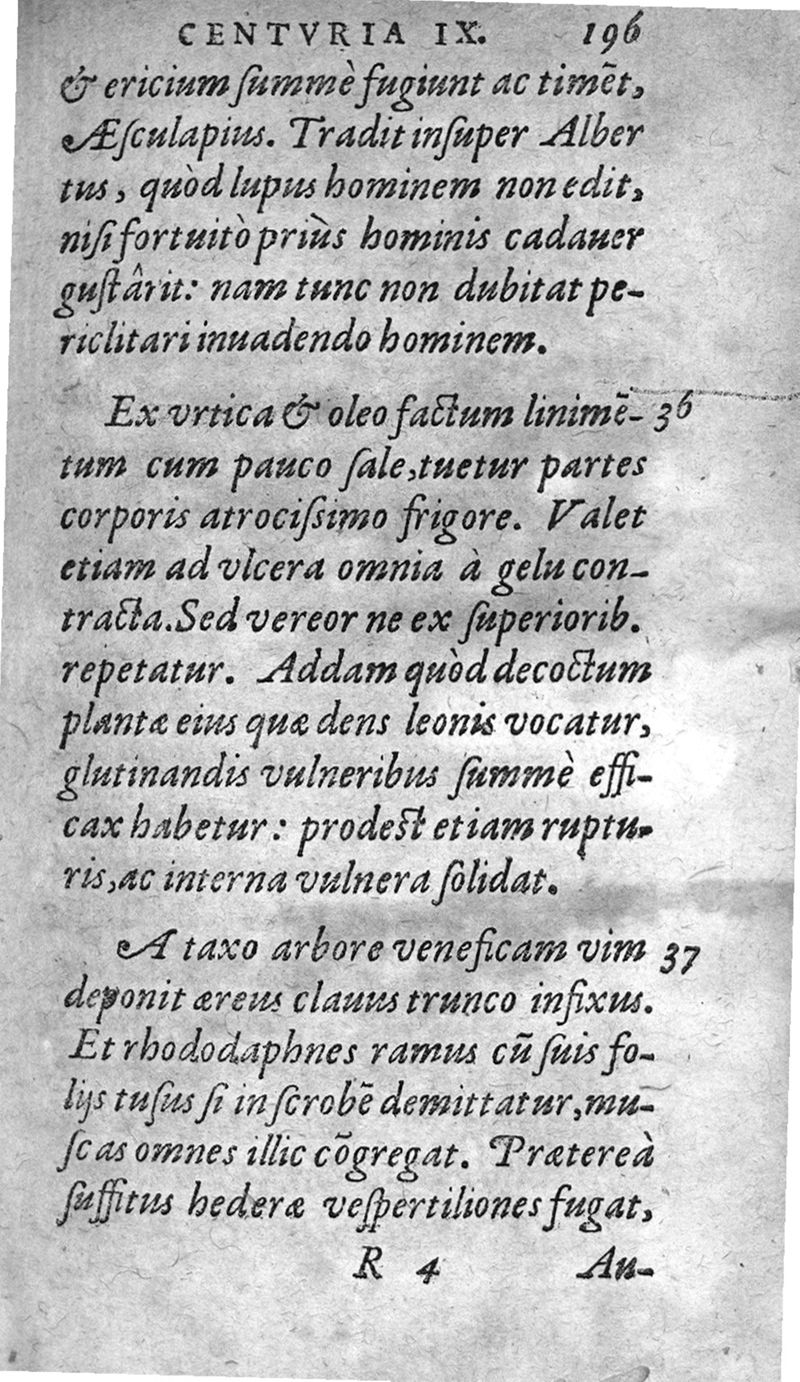 CENTVRIA IX. 196
& ericium ſummè fugiunt ac timēt,
Æſculapius. Tradit inſuper Alber
tus, quòd lupus hominem non edit,
niſi fortuitò priùs hominis cadauer
guſtârit: nam tunc non dubitat pe-
riclitari inuadendo hominem.
Ex vrtica & oleo factum linimē- 36
tum cum pauco ſale, tuetur partes
corporis atrociſsimo frigore. Valet
etiam ad vlcera omnia à gelu con-
tracta. Sed vereor ne ex ſuperiorib.
repetatur. Addam quòd decoctum
plantæ eius quæ dens leonis vocatur,
glutinandis vulneribus ſummè effi-
cax habetur: prodeſt etiam ruptu-
ris, ac interna vulnera ſolidat.
A taxo arbore veneficam vim 37
deponit æreus clauus trunco infixus.
Et rhododaphnes ramus cū ſuis fo-
lijs tuſus ſi in ſcrobē demittatur, mu-
ſcas omnes illic cōgregat. Prætereà
ſuffitus hederæ veſpertiliones fugat,
R 4 Au-